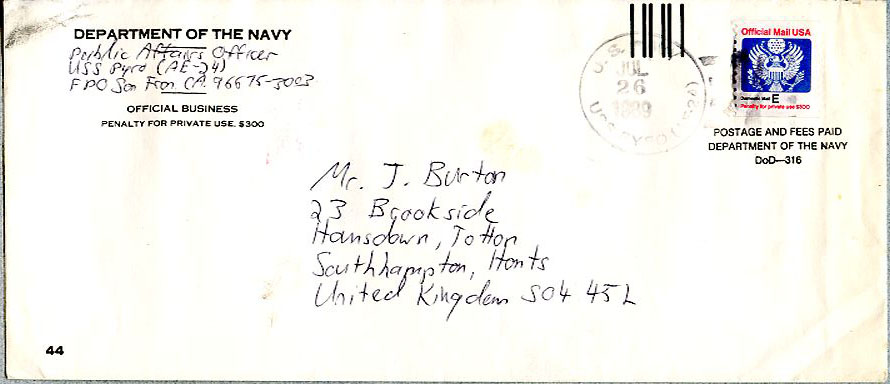 DEPARTMENT OF THE NAVY
Public Affairs Officer
USS Pyro (AE-24)
FPO San Fran CA 96675-3003
OFFICIAL BUSINESS
PENALTY FOR PRIVATE USE, $300
JUL
26
1989
USS PYRO
Official Mail USA
Domestic Mail E
Penalty for private use $300
POSTAGE AND FEES PAID
DEPARTMENT OF THE NAVY
DoD—316
Mr. J. Burton
23 Brookside
Hounsdown, Totton
Southhampton, Hants
United Kingdom SO4 4SL
44